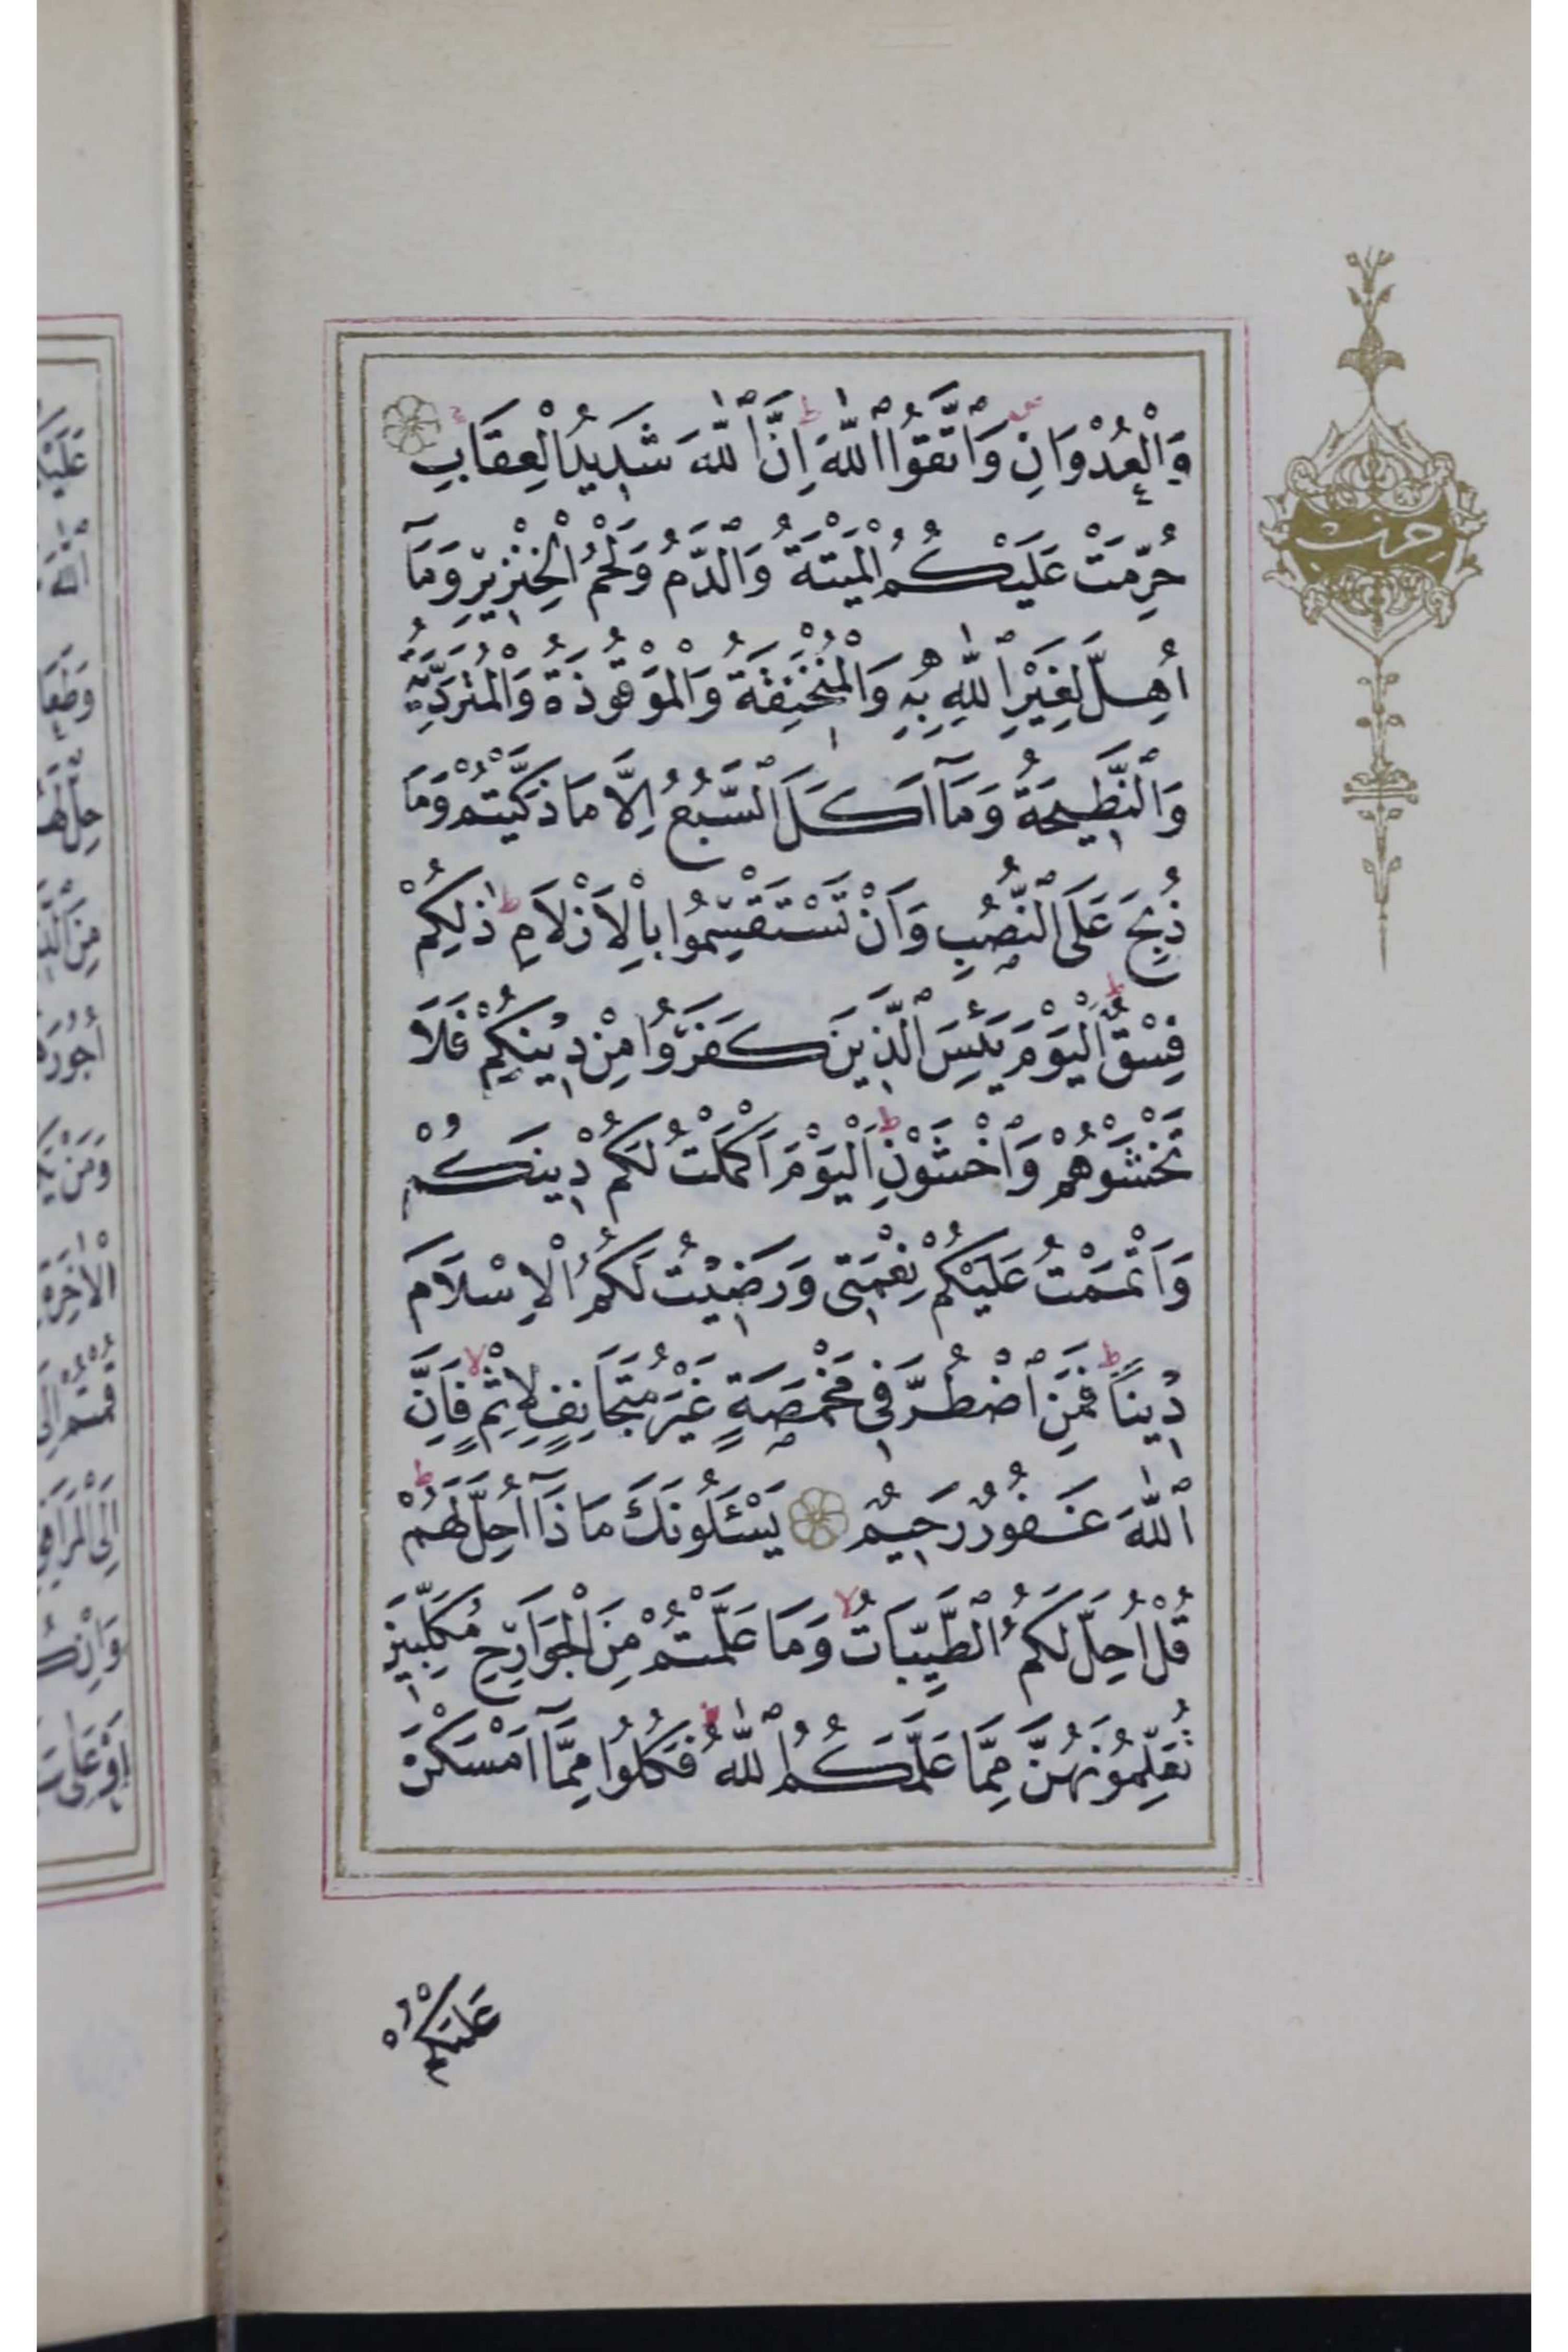 وَالْعُدْوَانِ وَاتَّقُوا اللّٰهَ اِنَّ اللّٰهَ شَدِيدُ الْعِقَابِ
حُرِّمَتْ عَلَيْكُمُ الْمَيْتَةُ وَالدَّمُ وَلَحْمُ الْخِنْزِيرِ وَمَآ
اُهِلَّ لِغَيْرِ اللّٰهِ بِهِ وَالْمُنْخَنِقَةُ وَالْمَوْقُوذَةُ وَالْمُتَرَدِّيَةُ
وَالنَّطِيحَةُ وَمَآ اَكَلَ السَّبُعُ اِلَّا مَا ذَكَّيْتُمْ وَمَا
ذُبِحَ عَلَى النُّصُبِ وَاَنْ تَسْتَقْسِمُوا بِالْاَزْلَامِ ذٰلِكُمْ
فِسْقٌ اَلْيَوْمَ يَئِسَ الَّذِينَ كَفَرُوا مِنْ دِينِكُمْ فَلَا
تَخْشَوْهُمْ وَاخْشَوْنِ اَلْيَوْمَ اَكْمَلْتُ لَكُمْ دِينَكُمْ
وَاَتْمَمْتُ عَلَيْكُمْ نِعْمَتِى وَرَضِيتُ لَكُمُ الْاِسْلَامَ
دِينًا فَمَنِ اضْطُرَّ فِى مَخْمَصَةٍ غَيْرَ مُتَجَانِفٍ لِاِثْمٍ فَاِنَّ
اللّٰهَ غَفُورٌ رَحِيمٌ يَسْئَلُونَكَ مَاذَآ اُحِلَّ لَهُمْ
قُلْ اُحِلَّ لَكُمُ الطَّيِّبَاتُ وَمَا عَلَّمْتُمْ مِنَ الْجَوَارِحِ مُكَلِّبِينَ
تُعَلِّمُونَهُنَّ مِمَّا عَلَّمَكُمُ اللّٰهُ فَكُلُوا مِمَّآ اَمْسَكْنَ
عَلَيْكُمْ
حزب